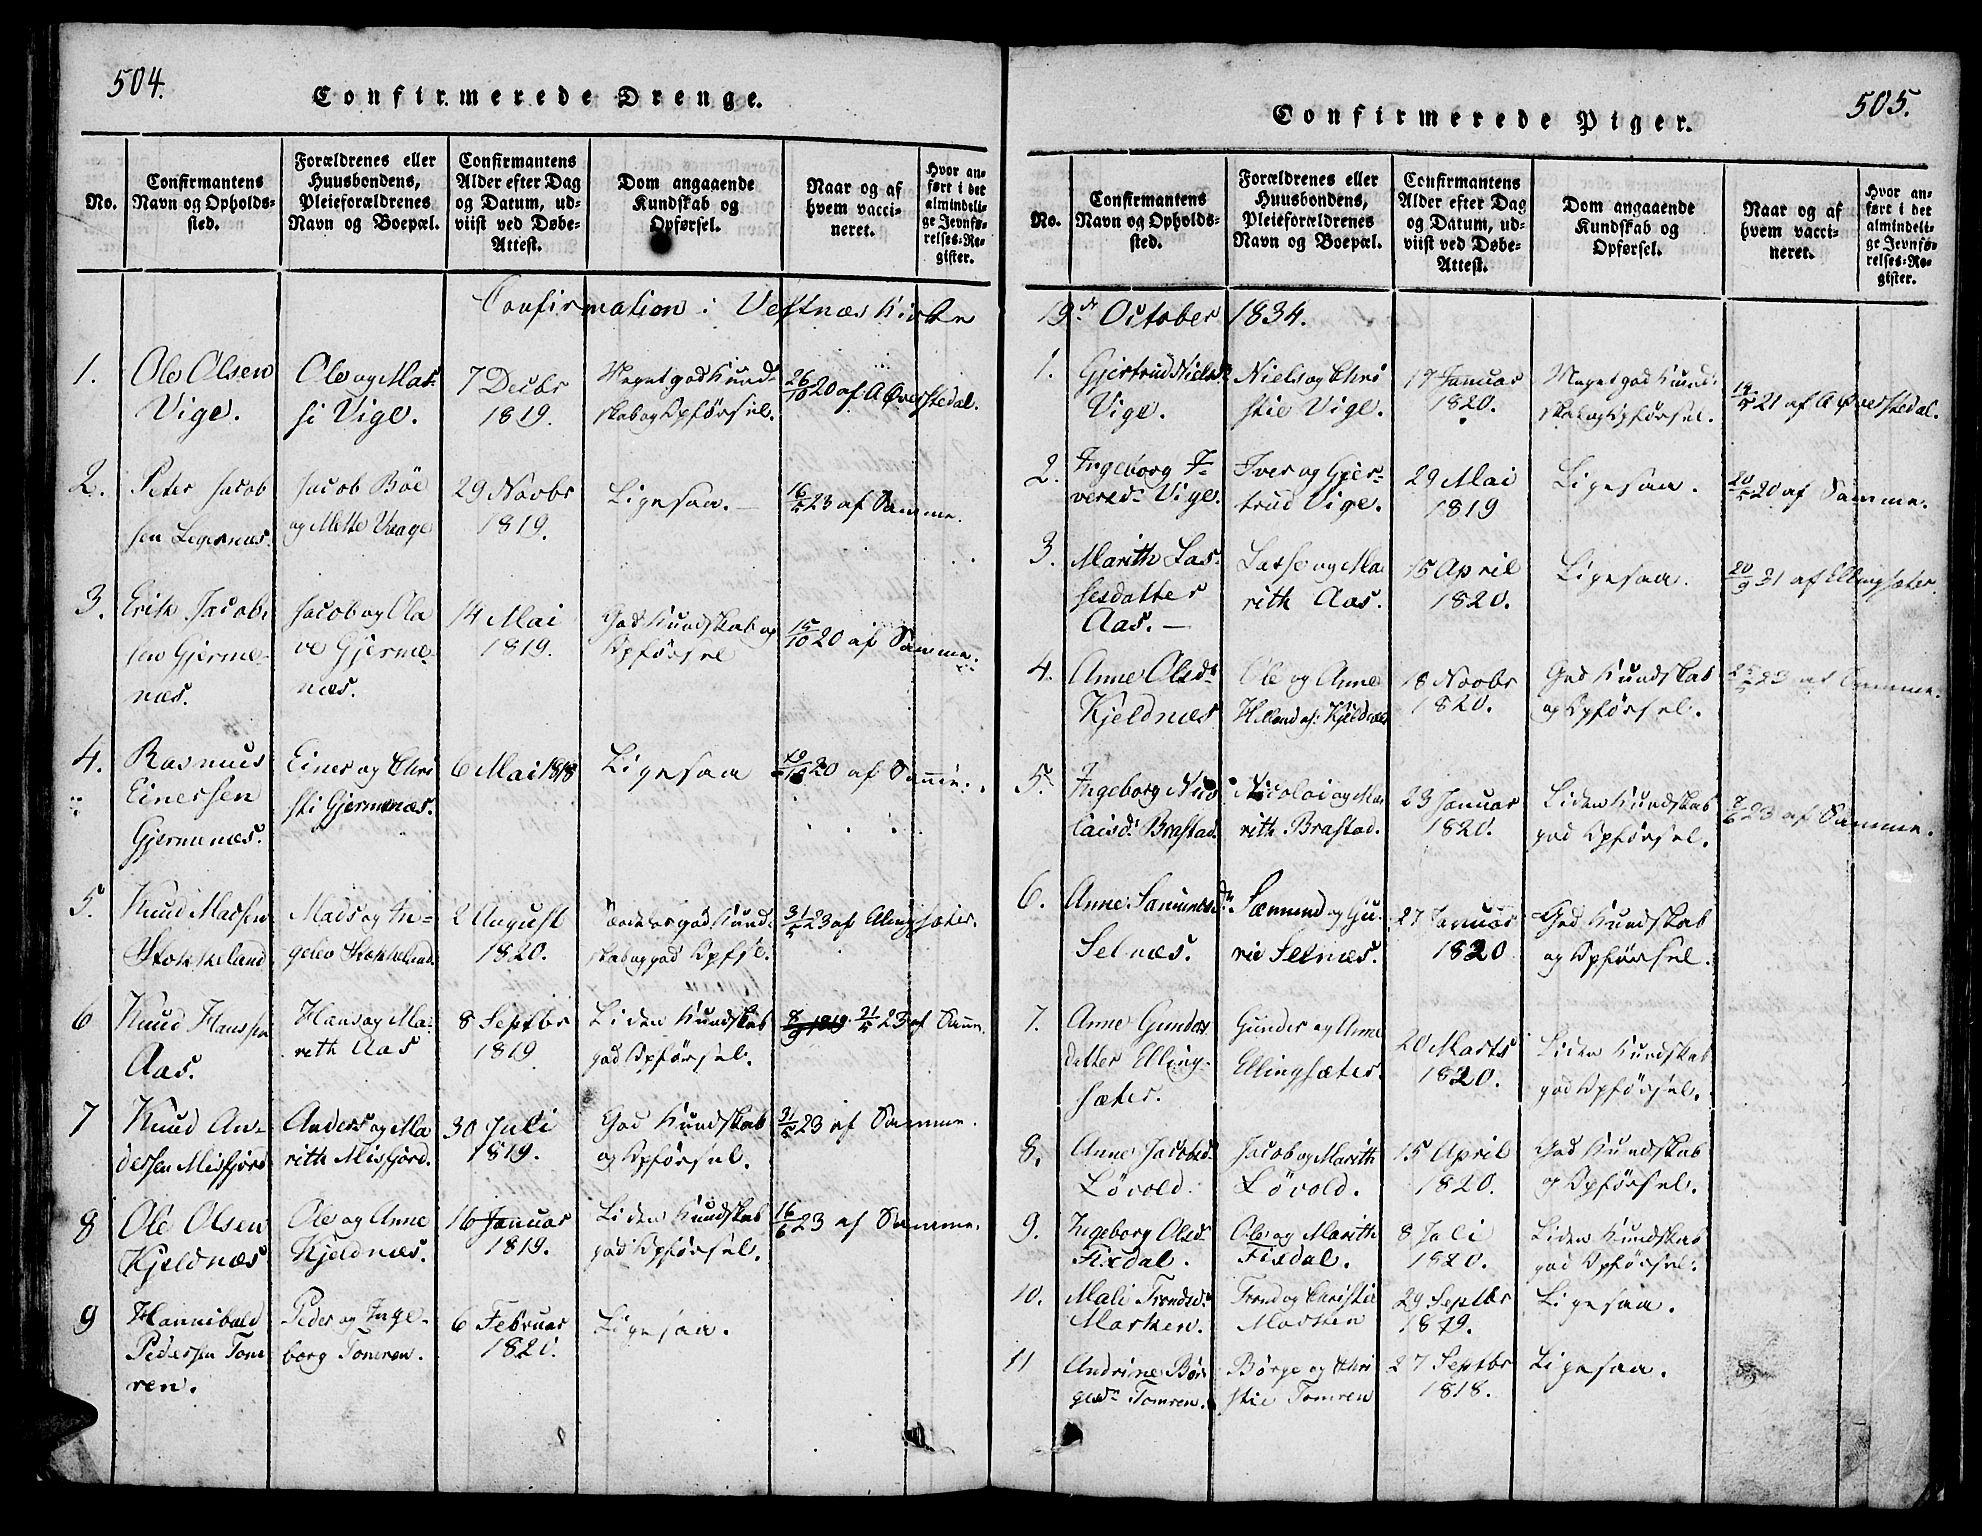 504.
Confirmerede Drenge.
No.
Confirmantens Navn og Opholdssted.
Forældrenes eller Huusbondens, Pleieforældrenes Navn og Boepæl.
Confirmantens Alder efter Dag og Datum, udviist ved Døbe-Attest.
Dom angaaende Kundskab og Opførsel.
Naar og af hvem vaccineret.
Hvor anført i det almindelige Jevnførelses-Register.
Confirmation i Vestnæs Kirke
1. Ole Olsen Vige. Ole og Matsi Vige. 7 Decbr 1819. Meget god Kundskab og Opførsel. 26/10 20 af A Øverstedal.
2. Peter Jacobsen Legernæs. Jacob Böe og Mette Vaage 29 Novbr 1819. Ligesaa. — 16/5 23 af Samme.
3. Erik Jacobsen Gjermenæs. Jacob og Olave Gjermenæs. 14 Mai 1819. God Kundskab og Opførsel 15/10 20 af Samme.
4. Rasmus Einersen Gjermenæs. Einer og Christi Gjermenæs. 6 Mai 1818 Ligesaa 20 af Samme.
5. Knud Madsen Stokkeland Mads og Ingebor Stokkeland. 2 August 1820. god Kundskab og god Opførsel. 31/5 23 af Ellingsæter.
6 Knud Hanssen Aas. Hans og Marith Aas 8 Septbr 1819. Liden Kundskab god Opførsel. 8/9 1819 21/5 23 af Samme.
7 Knud Andersen Misfjord Anders og Marith Misfjord. 30 Juli 1819. God Kundskab og Opførsel. 31/5 23 af Samme.
8 Ole Olsen Kjeldnæs Ole og Anne Kjeldnæs. 16 Januar 1819. Liden Kundskab god Opførsel. 16/6 23 af Samme.
9 Hannibald Pedersen Tomren. Peder og Ingeborg Tomren. 6 Februar 1820. Ligesaa.
505.
Confirmerede Piger.
No.
Confirmantens Navn og Opholdssted.
Forældrenes eller Huusbondens, Pleieforældrenes Navn og Boepæl.
Confirmantens Alder efter Dag og Datum, udviist ved Døbe-Attest.
Dom angaaende Kundskab og Opførsel.
Naar og af hvem vaccineret.
Hvor anført i det almindelige Jevnførelses-Register.
19de October 1834.
1. Gjertrud Nielsd. Vige. Niels og Christie Vige. 17 Januar 1820. Meget god Kundskab og Opførsel. 21 af A Øverstedal.
2. Ingeborg Iversd. Vige. Iver og Gjertrud Vige. 29 Mai 1819 Ligesaa. 20/5 20 af Samme.
3. Marith Lassesdatter Aas. — Lasse og Marith Aas. 15 April 1820. Ligesaa. 20/9 31 af Ellingsæter.
4. Anne Olsd. Kjeldnæs Ole og Anne Kjeldnæs 18 Novbr 1820. God Kundskab og Opførsel. 25/5 23 af Samme.
5. Ingeborg Nicolaisd. Brastad. Nicolai og Marith Brastad. 23 Januar 1820. Liden Kundskab god Opførsel. 7/6 23 af Samme.
6. Anne Sæmundsd. Selnæs. Sæmund og Gurie Selnæs. 27 Januar 1820 God Kundskab og Opførsel.
7. Anne Gundersdatter Ellingsæter. Gunder og Anne Ellingsæter. 20 Marts 1820. Liden Kundskab god Opførsel.
8. Anne Jacobsd. Lövold. Jacob og Marith Lövold. 15 April 1820. God Kundskab og Opførsel.
9. Ingeborg Olsd. Fixdal. Ole og Marith Fixdal. 8 Juli 1820. Liden Kundskab god Opførsel.
10. Mali Trondsd. Marken. Trond og Christie Marken 29 Septbr 1819. Ligesaa.
11 Andrine Börgesd. Tomren. Börge og Christie Tomren 27 Septbr 1818. Ligesaa.